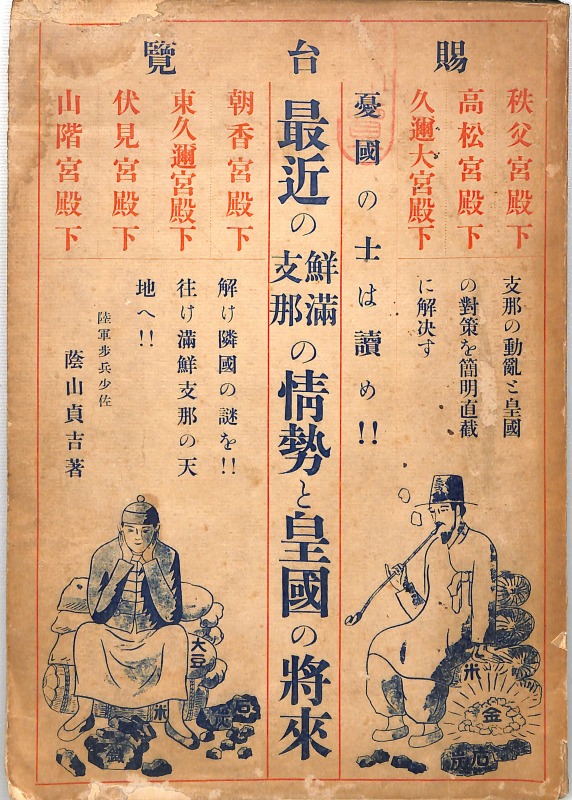 賜台覽
秩父宮殿下
高松宮殿下
久邇大宮殿下
支那の動亂と皇國
の對策を簡明直截
に解決す
憂國の士は讀め!!
最近の鮮滿支那の情勢と皇國の將來
朝香宮殿下
東久邇宮殿下
伏見宮殿下
山階宮殿下
解け隣國の謎を!!
往け滿鮮支那の天
地へ!!
陸軍步兵少佐
蔭山貞吉著
米
金
石炭
大豆
米